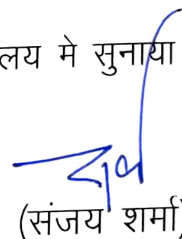 लय मे सुनाया
(संजय शर्मा)